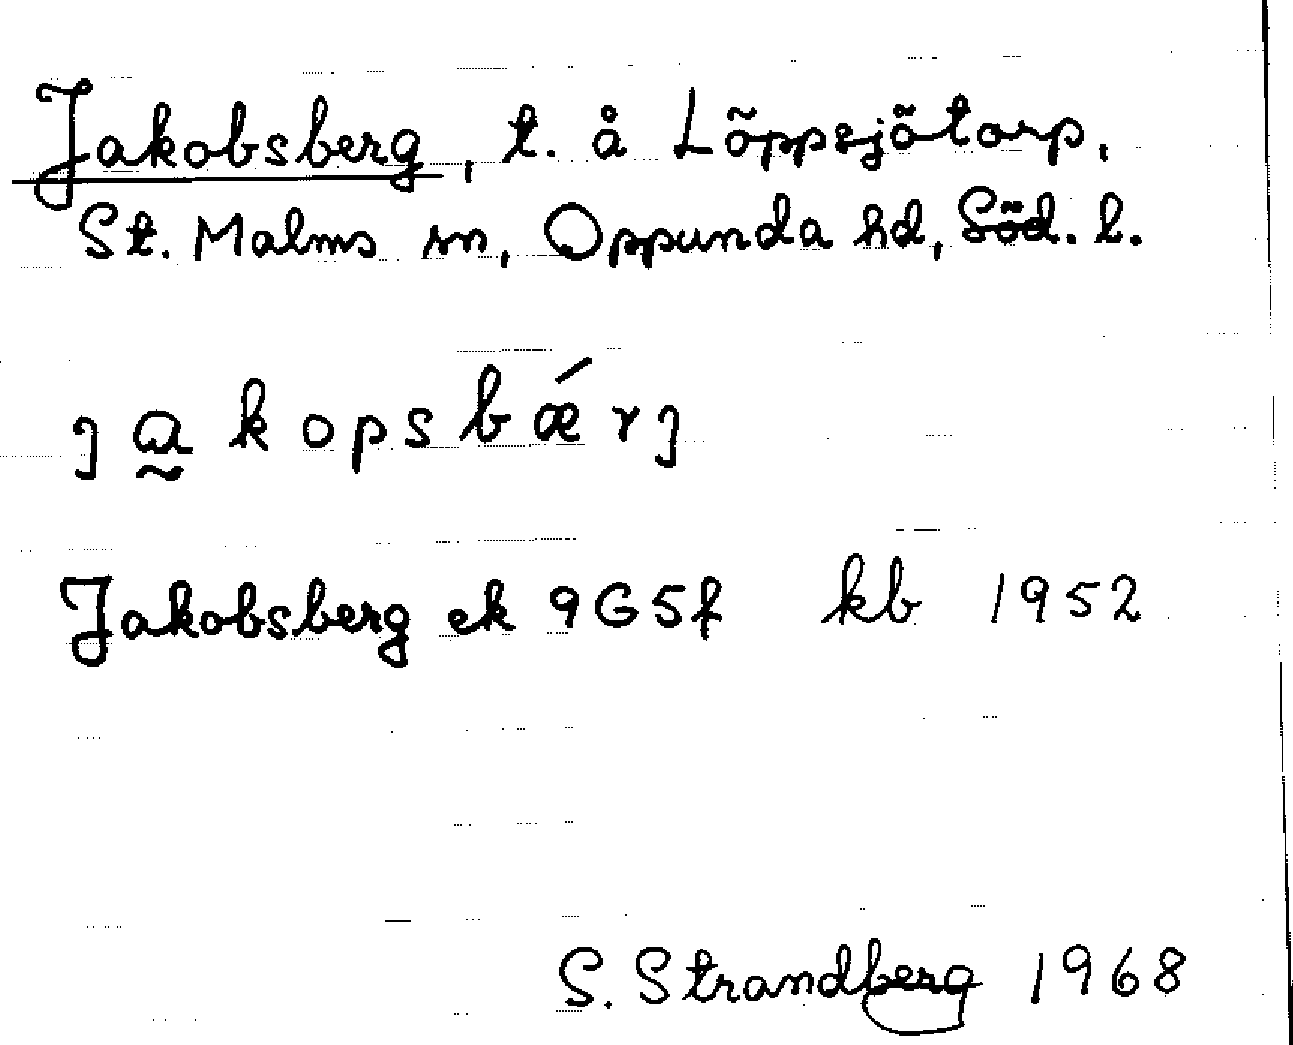 Jakobsberg, t. å Löppsjötorp,
St. Malms sn, Oppunda hd, Söd. l.
ȷ a̰ k o p s b ǽ r ȷ
Jakobsberg ek 9G5f kb 1952
S. Strandberg 1968